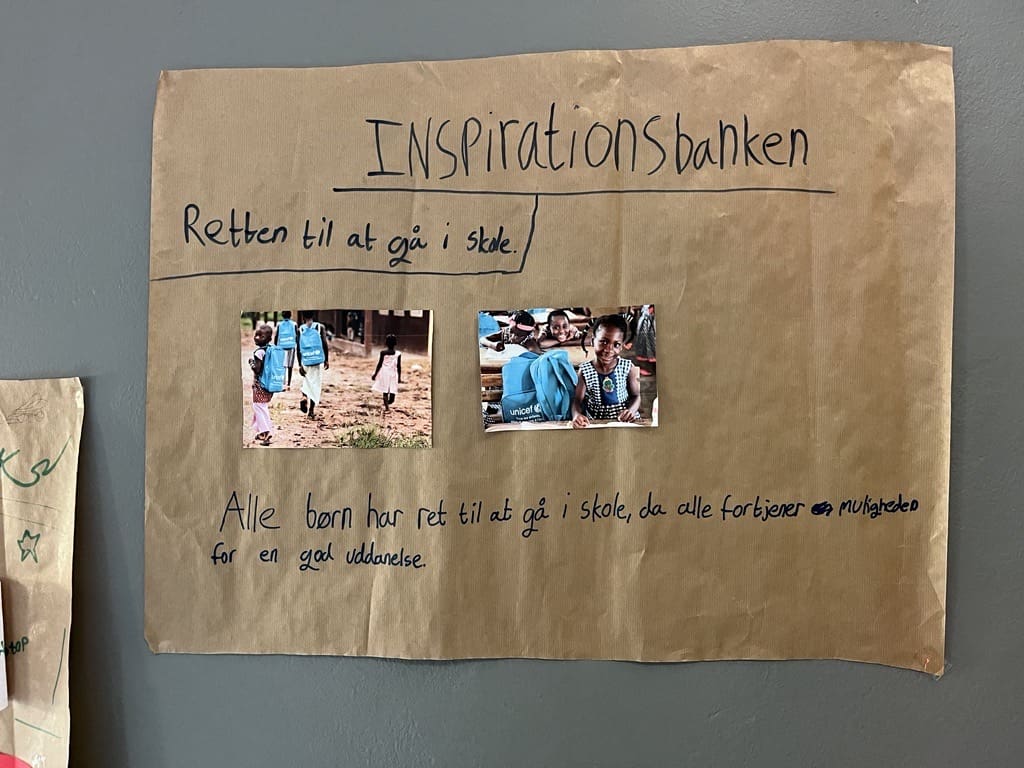 INSPirationsbanken
Retten til at gå i skole.
unicef
unicef
unicef
Alle børn har ret til at gå i skole, da alle fortjener muligheden
for en god uddanelse.
top